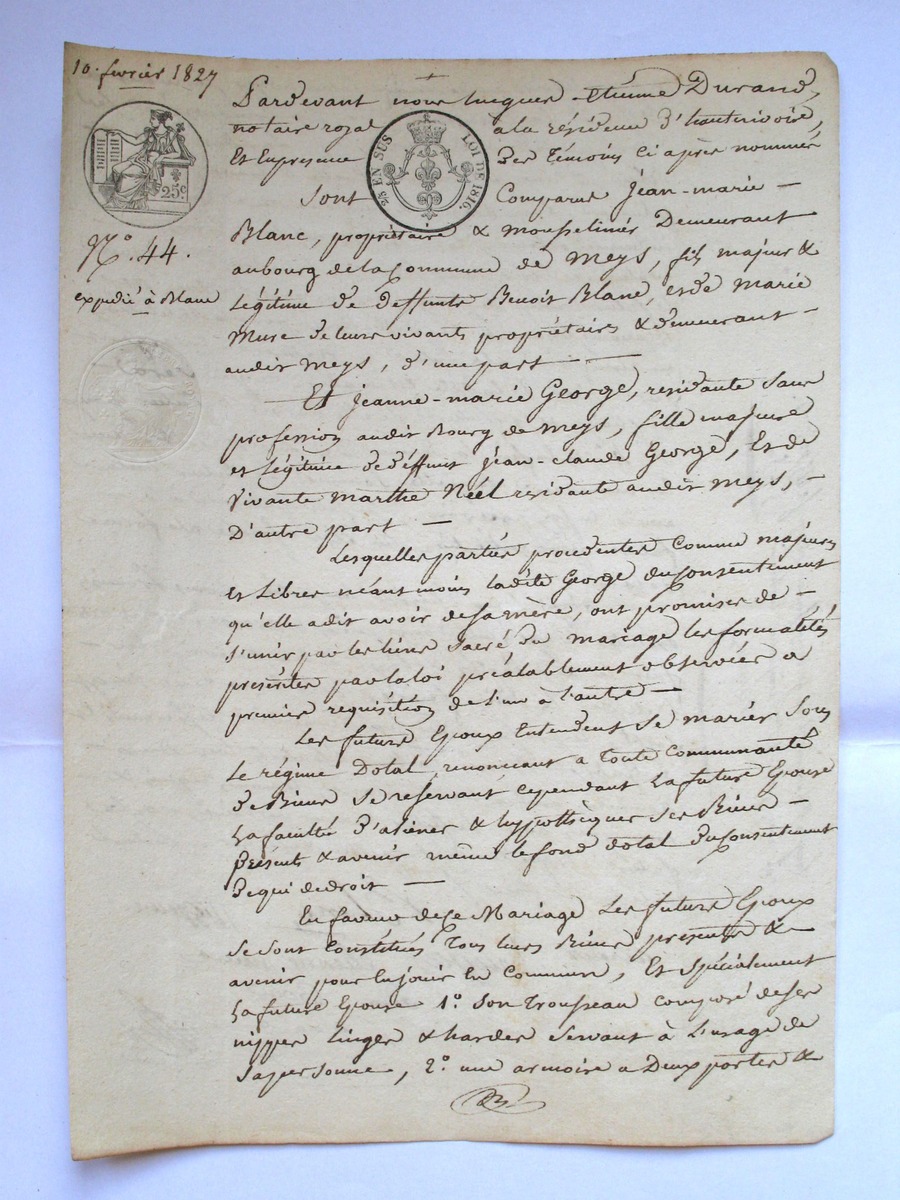 10. fevrier 1827
Pardevant nous Jacques - étienne Durand,
notaire royal à la résidence d'hauterivoire,
Et En presence des Témoins Ci après nommés
25 EN SUS LOI DE 1816.
25c
Sont Comparus Jean-marie —
N.o 44.
Blanc, propriétaire & mousselinier Demeurant
expédié à Blanc
aubourg de la Commune de Meys, fils majeur &
Légitime de deffunts Benoit Blanc, et de Marie
Mure de leurs vivants propriétaires & demeurant —
audit Meys, d'une part —
Et Jeanne-marie George, residante sans
profession audit Bourg de Meys, fille majeure
et Légitime de déffunt Jean-claude George, Et de
Vivante marthe Néel residante audit Meys, —
D'autre part —
Lesquelles parties procedentes Comme majeures
et Libres néant moins ladite George du Consentement
qu'elle a dit avoir de sa mère, ont promises de —
s'unir par les liens sacré du mariage les formalités
présérites par la loi préalablement observées a
premier requisition de l'un à l'autre —
Les futurs Epoux Entendent Se marier Sous
Le régime Dotal, renoncant a Toute Communauté
de Biens Se reservant cependant La future Epouse
La faculté d'aliéner & hypothèquer Ses Biens —
présents & avenir même le fond dotal du Consentement
De qui de droit —
En faveur de ce Mariage Les futurs Epoux
Se Sont Constitués Tous leurs Biens presents &
avenir pour En jouir En Commun, Et Spécialement
La future Epouse 1.o Son Trousseau composé de ses
nippes linges & hardes Servant à L'usage de
Sa personne, 2.o une armoire a Deux portes &